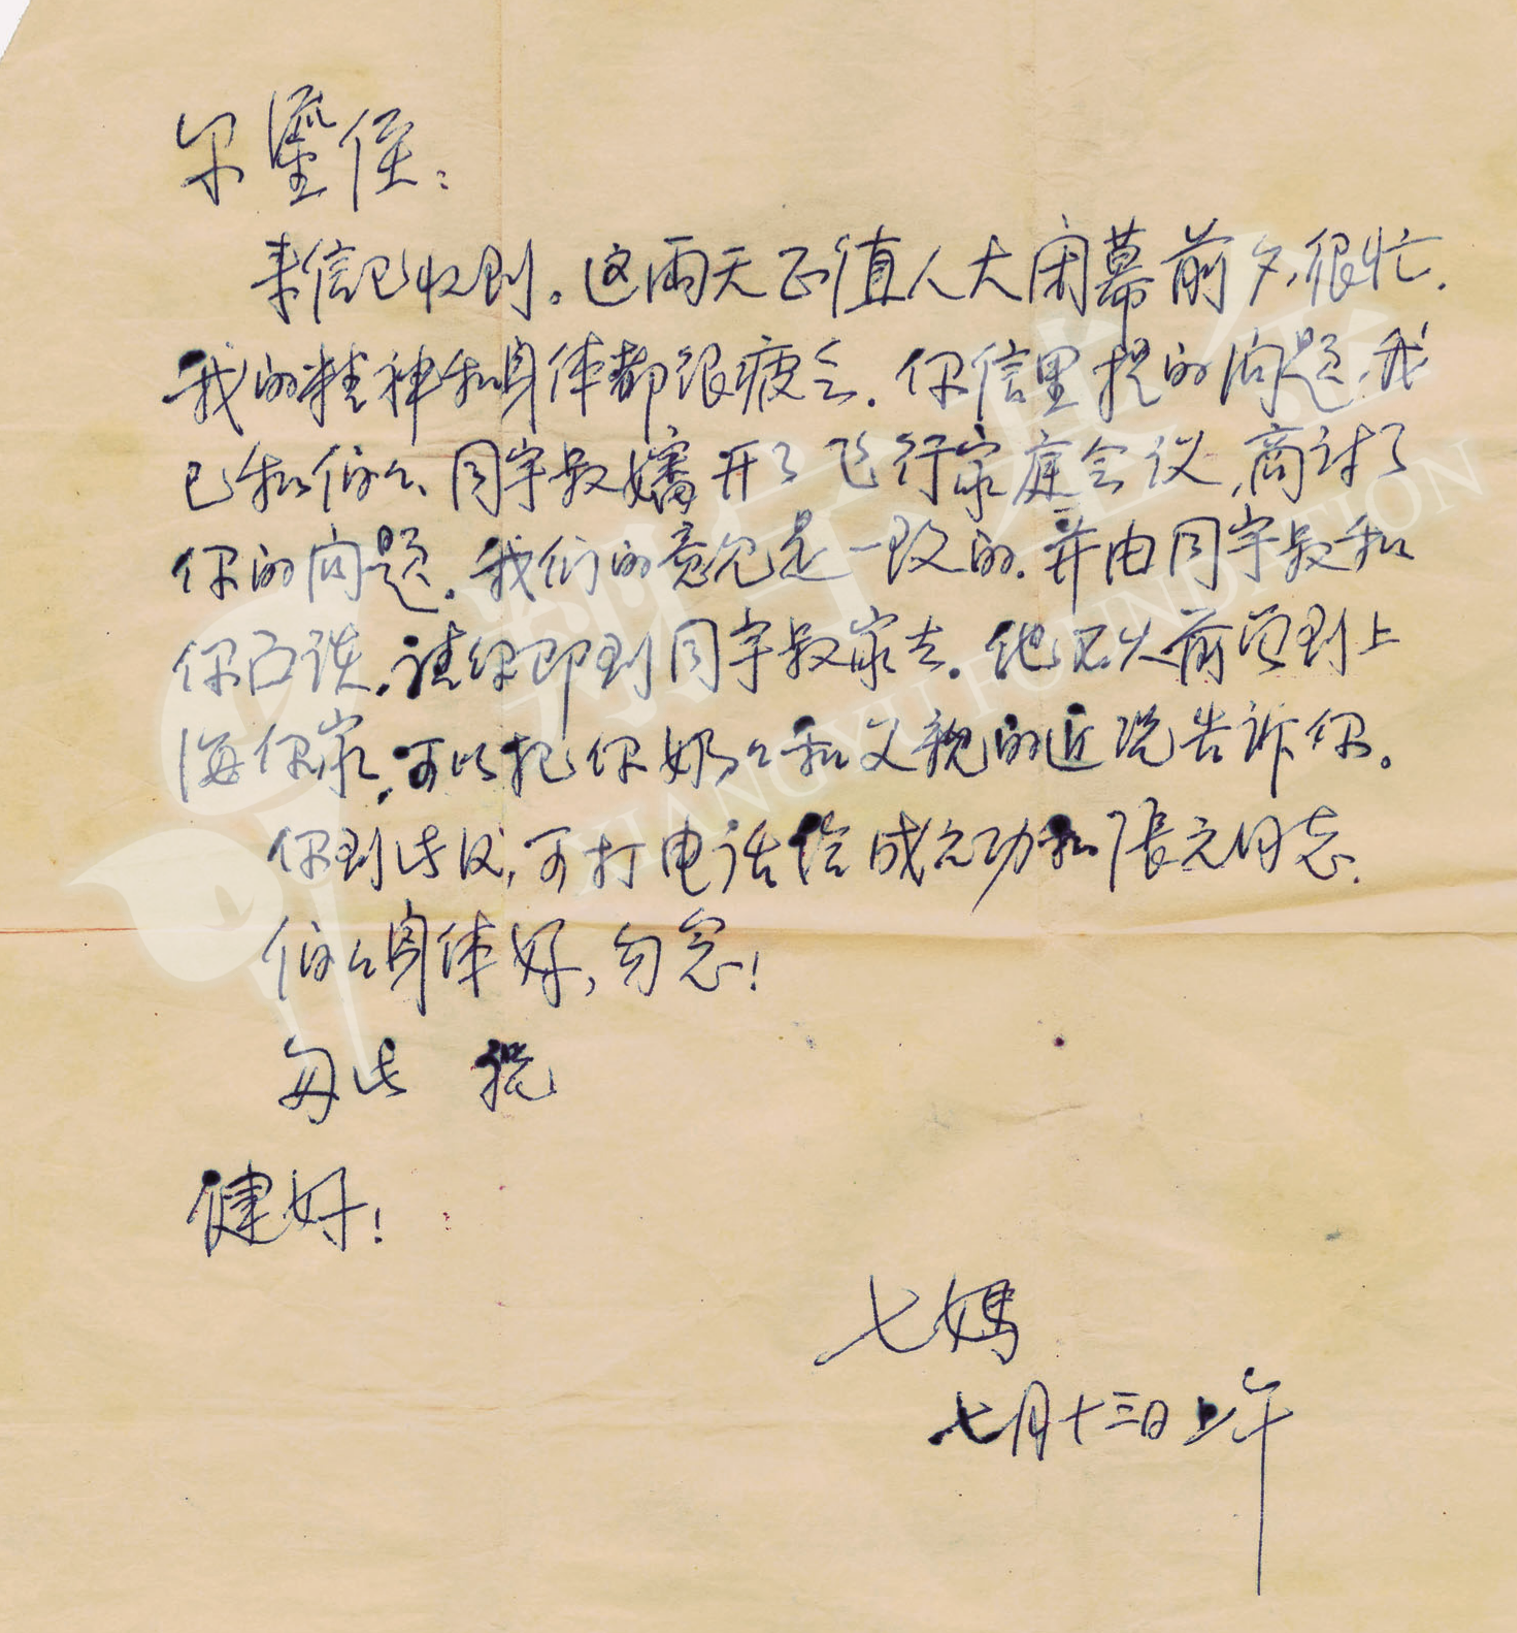 尔鎏侄：
来信已收到。这两天正值人大闭幕前夕，很忙.
我的精神和身体都很疲乏. 你信里提的问题，我
已和伯伯、同宇叔婶开了飞行家庭会议，商讨了
你的问题。我们的意见是一致的. 并由同宇叔和
你面谈. 请你即到同宇叔家去. 他不久前曾到上
海你家，可以把你奶奶和父亲的近况告诉你。
你到此后，可打电话给成元功和張元同志.
伯伯身体好，勿念！
匆此 祝
健好！
七媽
七月十三日上午
翔宇基金
XIANGYU FOUNDATION